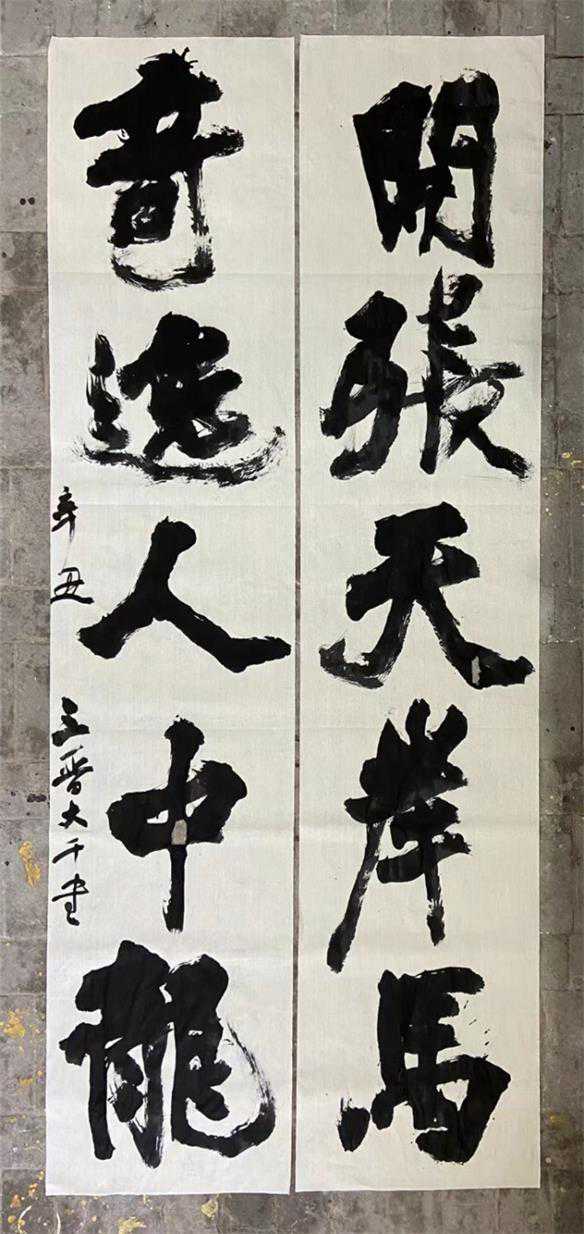 開張天岸馬
奇逸人中龍
辛丑
三晋大千書